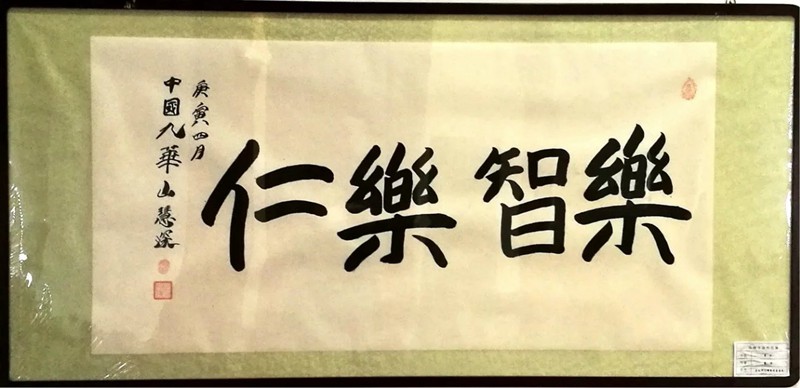 樂智樂仁
庚寅四月
中國九華山慧深